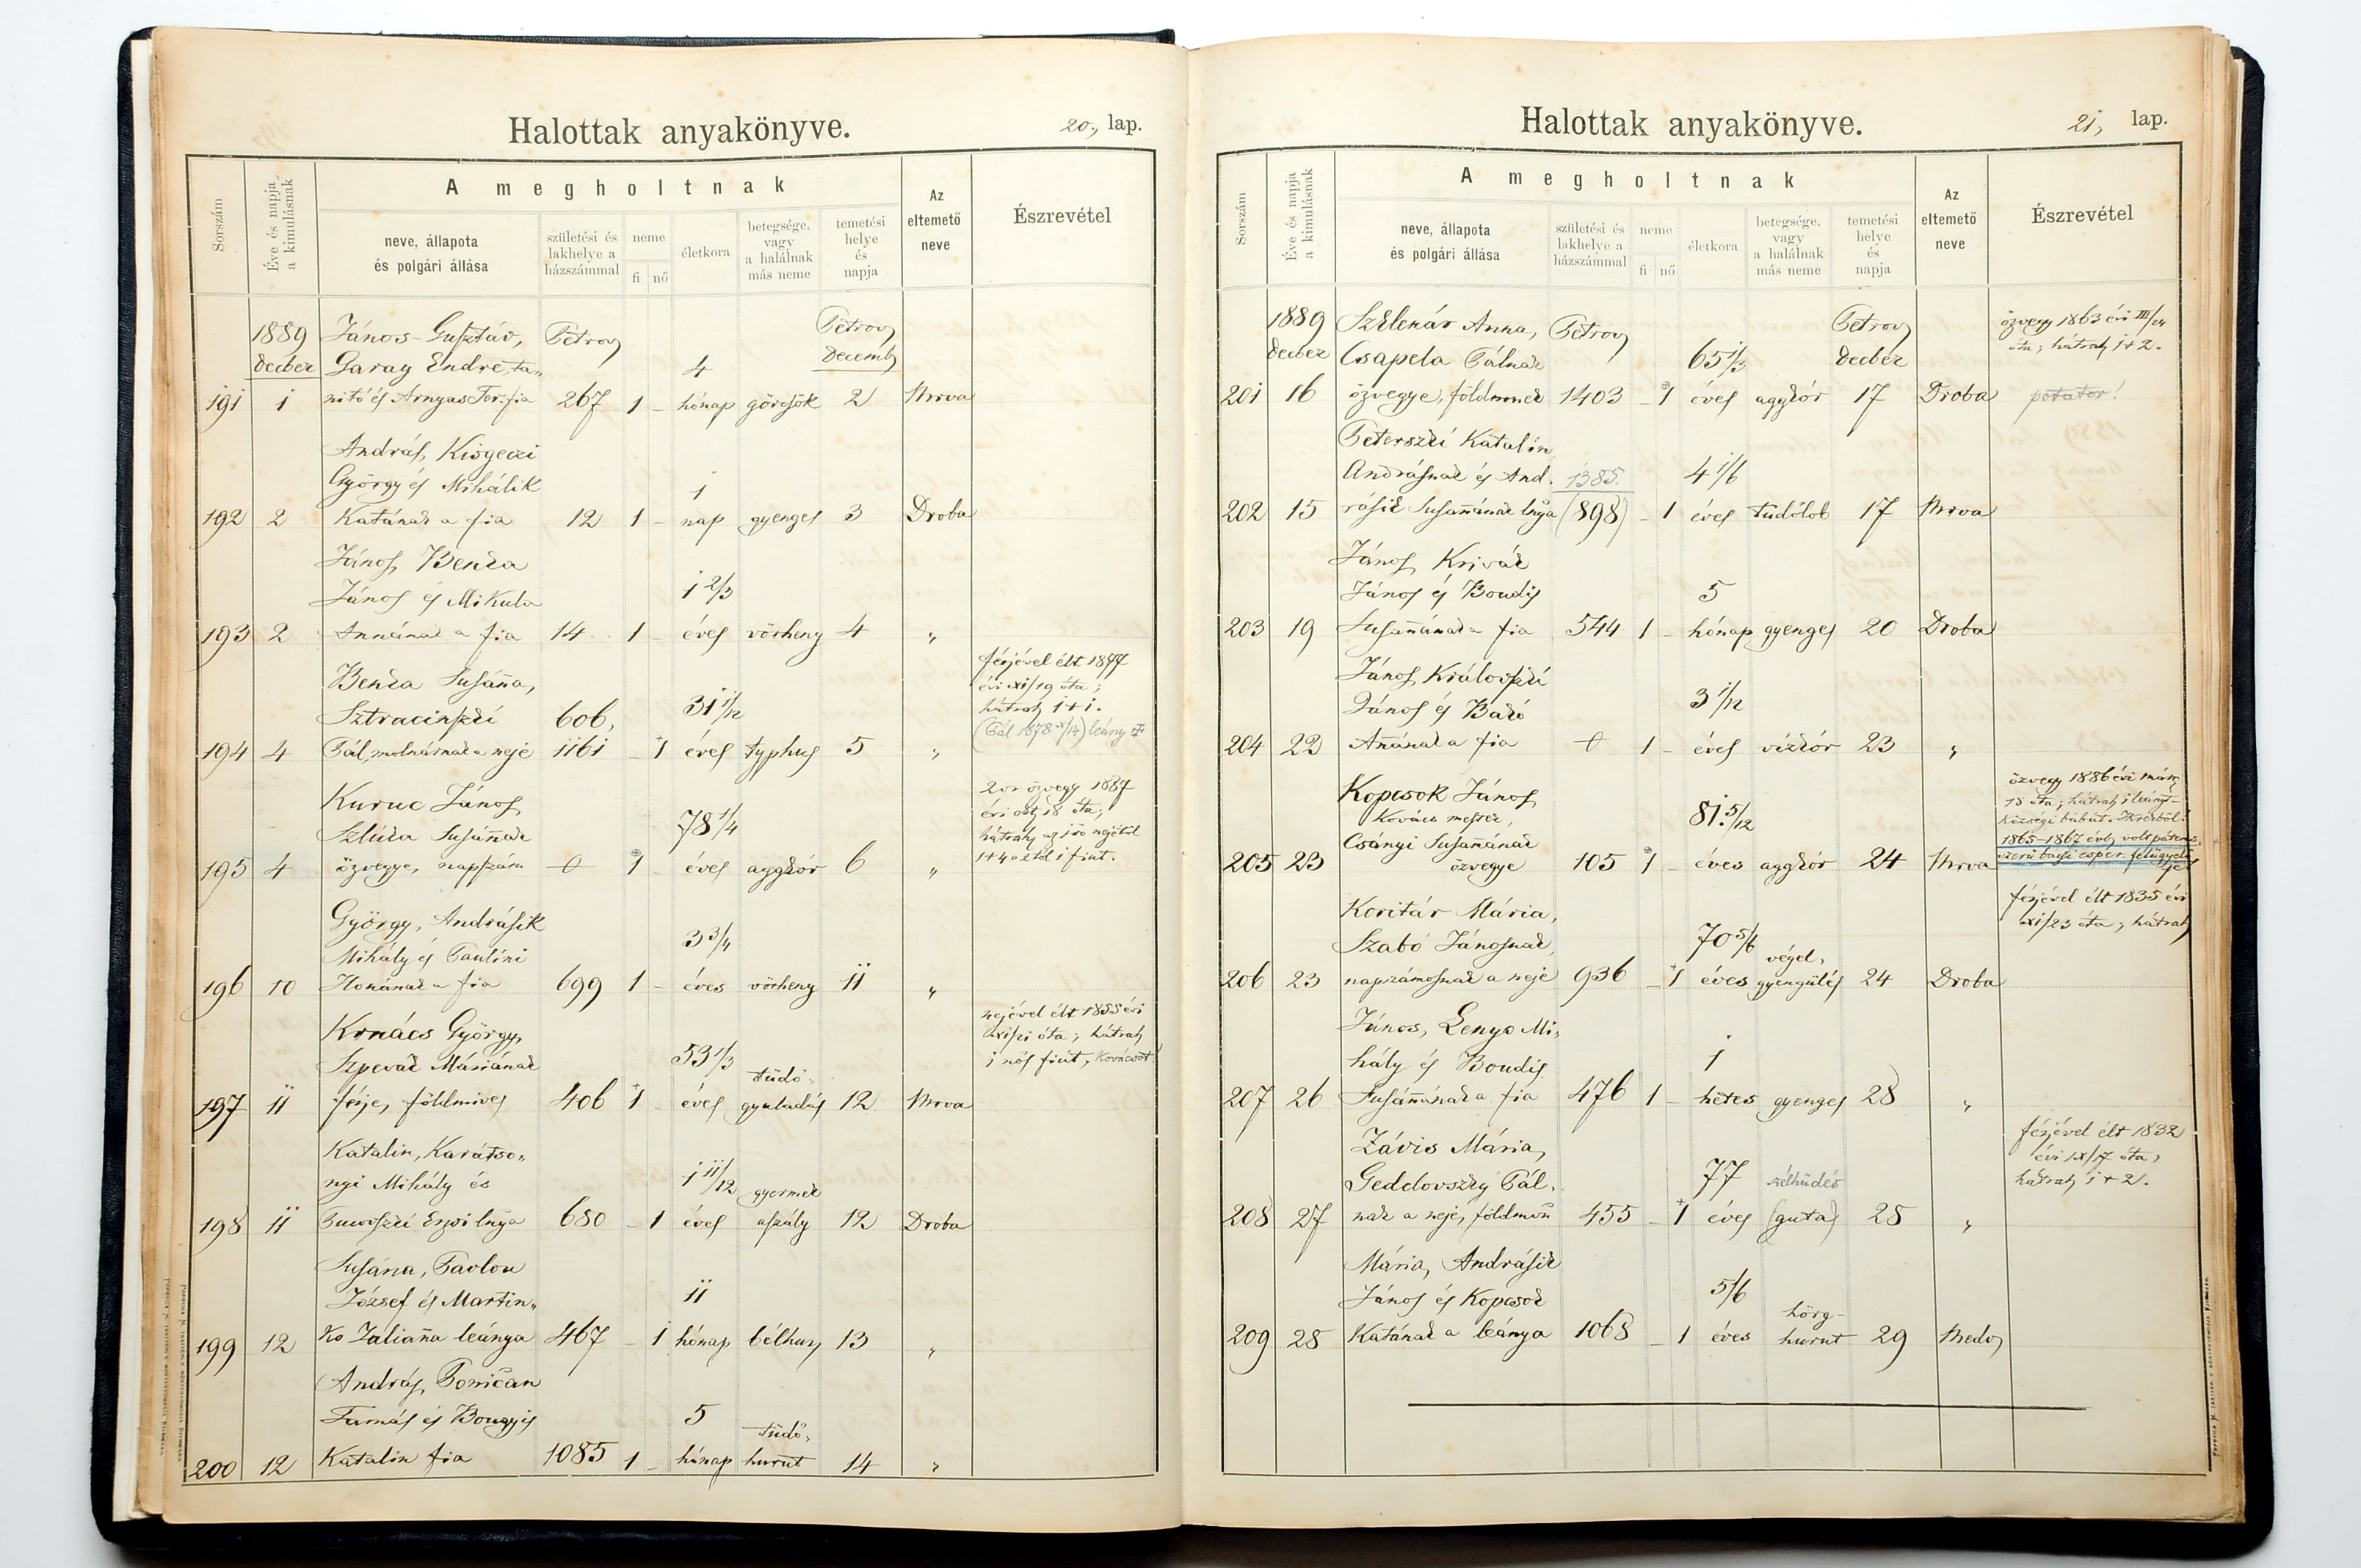 Halottak anyakönyve.
20., lap.
Sorszám
Éve és napja a kimulásnak
A megholtnak
neve, állapota és polgári állása
születési és lakhelye a házszámmal
neme
fi
nő
életkora
betegsége, vagy a halálnak más neme
temetési helye és napja
Az eltemető neve
Észrevétel
1889 János-Gusztáv, Petrov Petrov
decber Garay Endre, ta„ 4 decemb
191 1 nitó és Arnyas Ter. fia 267 1 – hónap görcsök 2 Mrva
András, Kisgeczi
György és Mihálik 1
192 2 Katának a fia 12 1 – nap gyenges 3 Droba
János, Benka
János és Mikula 1 2/3
193 2 Annának a fia 14 1 – éves vörheny 4 „
Benka Susánna, férjével élt 1877
évi xi/19 óta;
Sztracinszki 606, 31 1/12 hátrah 1+1.
194 4 Pál, molnárnak a neje 1161 – 1 éves typhus 5 „
Kuruc János, 2or özvegy 1887
Szluka Susánnak 78 1/4 évi okt 18 óta;
hátrah az 1ső nejétől
195 4 özvegye, napszám 0 1 – éves aggkór 6 „ 1+4 aztól 1 fiut.
György, Andrásik
Mihály és Paulini 3 3/4
196 10 Ilonának a fia 699 1 – éves vörheny 11 „
Kovács György, nejével élt 1855 évi
xi/21 óta; hátrah
Szpevák Máriának 53 1/3 tüdő- 1 nős fiút, Kovácsot!
197 11 férje, földmives 406 1 – éves gyuladás 12 Mrva
Katalin, Karátso„
nyi Mihály és 1 11/12 gyermek
198 11 Erzsi lnya 680 – 1 éves aszály 12 Droba
Susána, Pavlov
József és Martin„ 11
199 12 ko Zulianna leánya 467 – 1 hónap bélhur 13 „
András, Tomčan
Tamás és Bougyis 5 tüdő-
200 12 Katalin fia 1085 1 – hónap hurut 14 „
Halottak anyakönyve.
21, lap.
Sorszám
Éve és napja a kimulásnak
A megholtnak
neve, állapota és polgári állása
születési és lakhelye a házszámmal
neme
fi
nő
életkora
betegsége, vagy a halálnak más neme
temetési helye és napja
Az eltemető neve
Észrevétel
1889 Szklenár Anna, Petrov Petrov özvegy 1863 évi III/
decber Csapela Pálnak 65 1/3 decber óta; hátrah 1+2.
201 16 özvegye, földmnek 1403 – 1 éves aggkór 17 Droba potator!
Peterszki Katalin,
Andrásnak és And. 1385. 4 1/6
202 15 rásik Susannának lnya (898) – 1 éves tüdőlob 17 Mrva
János, Krivák
János és Boudis 5
203 19 Susannának a fia 544 1 – hónap gyenges 20 Droba
János, Královszki
János és Bakó 3 1/12
204 22 Annának a fia 0 1 – éves vizkór 23 „
Kopcsok János, özvegy 1886 évi márc
Kovács mester, 81. 5/12 18 óta; hátrah 1 leányt-
Csányi Susannának
1865-1867 évig volt
205 23 özvegye 105 1 – éves aggkór 24 Mrva esper. felügyelő
Koritár Mária, férjével élt 1835 évi
Szabó Jánosnak, 70 5/6 végel. xi/23 óta; hátrah
206 23 napszámosnak a neje 936 – 1 éves gyengülés 24 Droba
János, Lenyo Mi„
hály és Boudis 1
207 26 Susannának a fia 476 1 – hetes gyenges 28 „
Závis Mária, férjével élt 1832
évi ix/17 óta,
Geddovszky Pál. 77 szélhüdés hátrah 1+2.
208 27 nak a neje, földműv 455 – 1 éves (guta) 28 „
Mária, Andrásik
János és Kopcsok 5/6 hörg-
209 28 Katának a leánya 1068 – 1 éves hurut 29 Medv